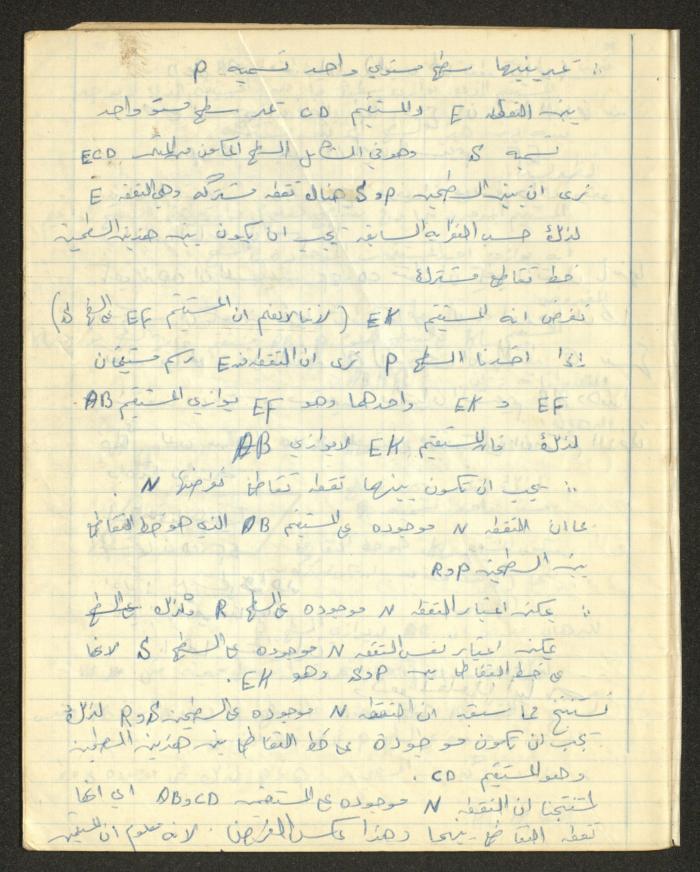 ∴ نمرر بينهما سطح مستوي واحد نسميه P
بين النقطه E والمستقيم CD نمرر سطح مستو واحد
نسميه S وهو في الشكل السطح المكون من المثلث ECD
نرى ان بين السطحين P و S هناك نقطه مشتركه وهي النقطه E
لذلك حسب النظرايه السابقه يجب ان يكون بين هذين السطحين
خط تقاطع مشترك
نفرض انه المستقيم EK (لاننا لا نعلم ان المستقيم EF على السطح S)
إذا اخذنا السطح P نرى ان النقطه E رسم مستقيمان
EF و EK واحدهما وهو EF يوازي المستقيم AB
لذلك فان المستقيم EK لا يوازي AB
∴ يجب ان تكون بينهما نقطه تقاطع نفرضها N .
بما ان النقطه N موجوده على المستقيم AB الذي هو خط التقاطع
بين السطحين P و R
∴ يمكن اعتبار النقطه N موجوده على السطح R وكذلك على السطح
يمكن اعتبار نفس النقطه N موجوده على السطح S لانها
على خط التقاطع بين P و S وهو EK .
نستنتج مما سبق ان النقطه N موجوده على السطحين S و R لذلك
يجب ان تكون موجودة على خط التقاطع بين هذين السطحين
وهو المستقيم CD .
استنتجنا ان النقطه N موجوده على المستقيمين CD و AB اي انها
نقطه التقاطع بينهما وهذا عكس الفرض لانه معلوم ان المستقيمين